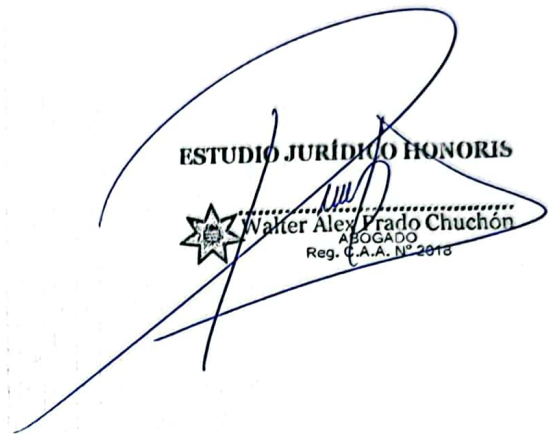 ESTUDIO JURÍDICO HONORIS
Walter Alex Prado Chuchón
ABOGADO
Reg. C.A.A. Nº 2018